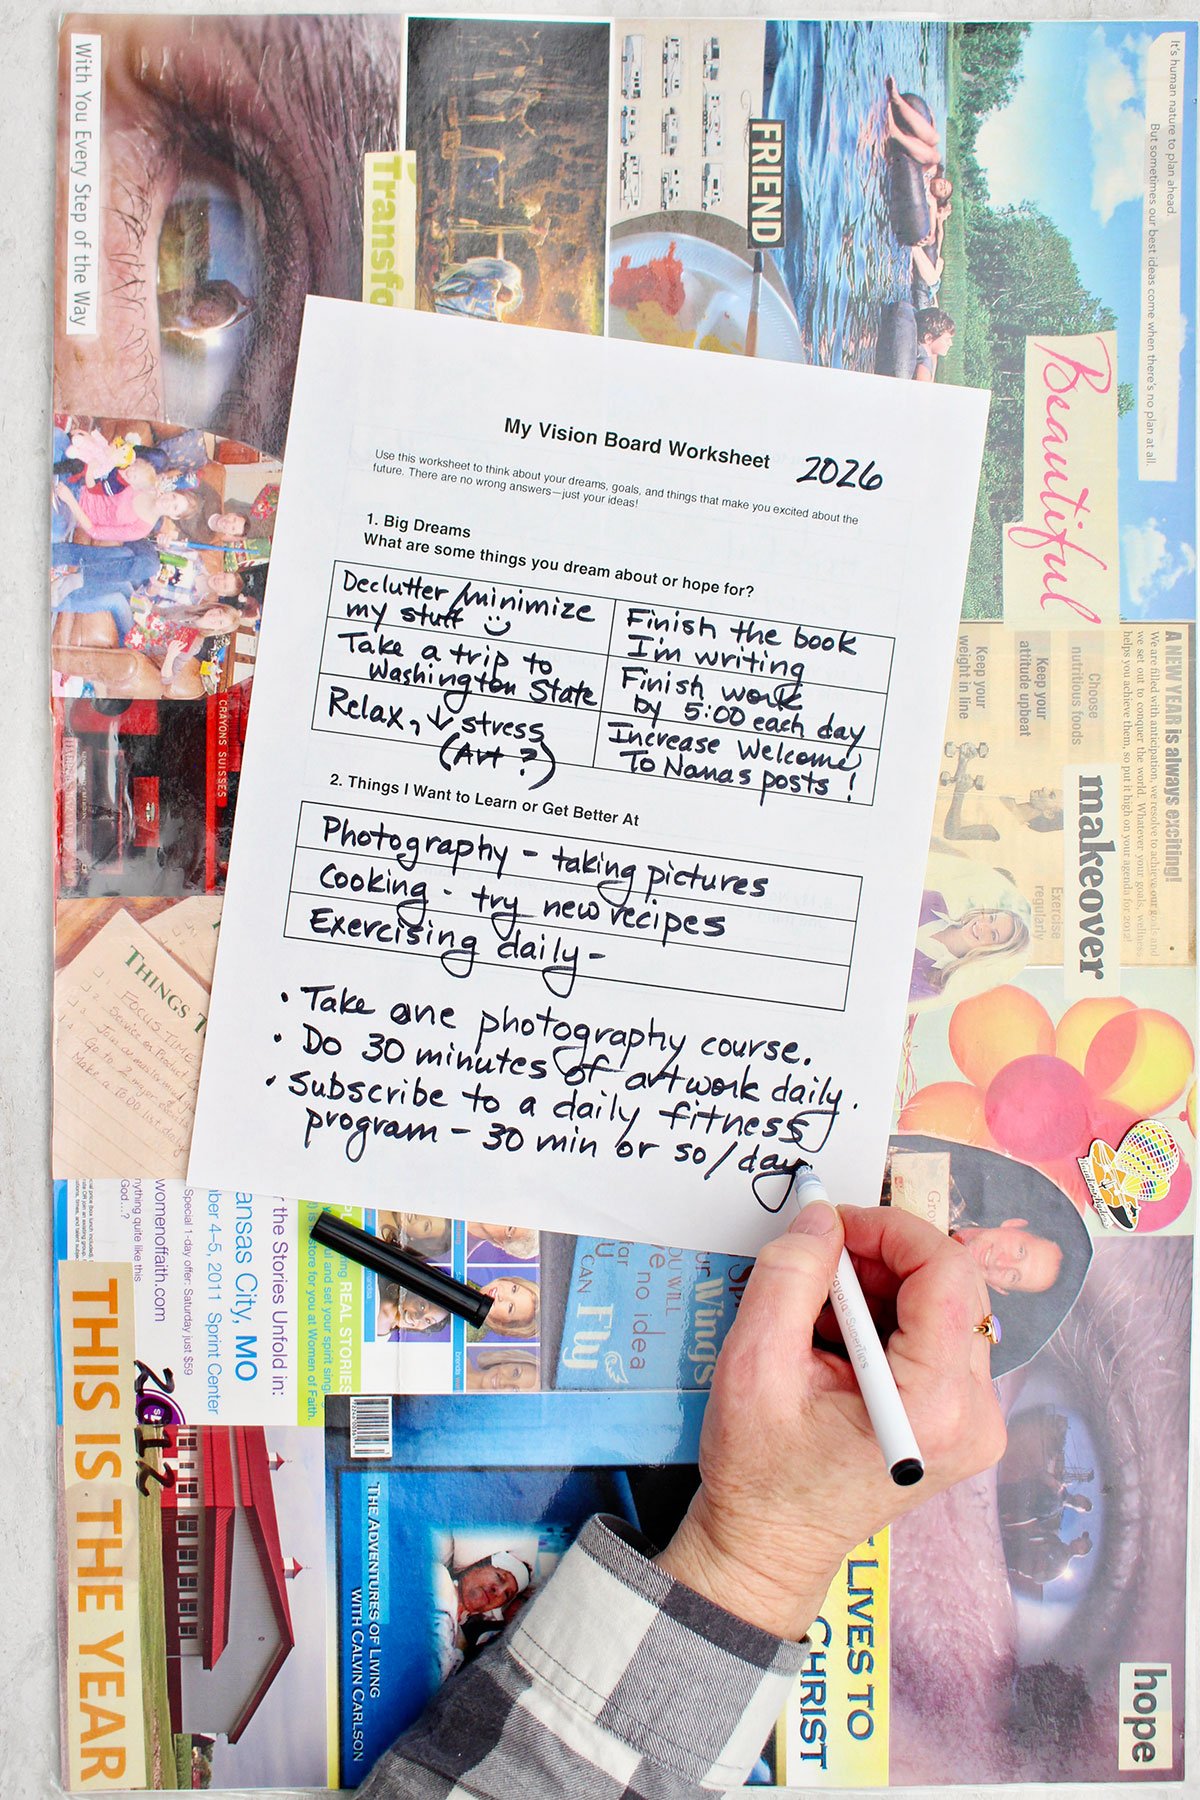 My Vision Board Worksheet 2026
Use this worksheet to think about your dreams, goals, and things that make you excited about the
future. There are no wrong answers—just your ideas!
1. Big Dreams
What are some things you dream about or hope for?
Declutter/minimize
my stuff
Finish the book
I'm writing
Take a trip to
Washington State
Finish work
by 5:00 each day
Relax, ↓ stress
(Art?)
Increase Welcome
To Nanas posts!
2. Things I Want to Learn or Get Better At
Photography - taking pictures
Cooking - try new recipes
Exercising daily -
• Take one photography course.
• Do 30 minutes of artwork daily.
• Subscribe to a daily fitness
program - 30 min or so/day.
With You Every Step of the Way
Transfo
FRIEND
It's human nature to plan ahead.
But sometimes our best ideas come when there's no plan at all.
Beautiful
A NEW YEAR is always exciting!
We are filled with anticipation, we resolve to achieve our goals and
we set out to conquer the world. Whatever your goals, wellness
helps you achieve them, so put it high on your agenda for 2012!
Choose
nutritious foods
Keep your
attitude upbeat
Keep your
weight in line
Exercise
regularly
makeover
CRAYONS SUISSES
THINGS T
FOCUS TIME
THIS IS THE YEAR
2012
ansas City, MO
ber 4-5, 2011 Sprint Center
Special 1-day offer: Saturday just $59
womenoffaith.com
nything quite like this
God...?
r the Stories Unfold in:
REAL STORIES
at Women of Faith.
YOU WILL
no idea
Wings
CAN
Fly
THE ADVENTURES OF LIVING
WITH CALVIN CARLSON
LIVES TO
CHRIST
hope